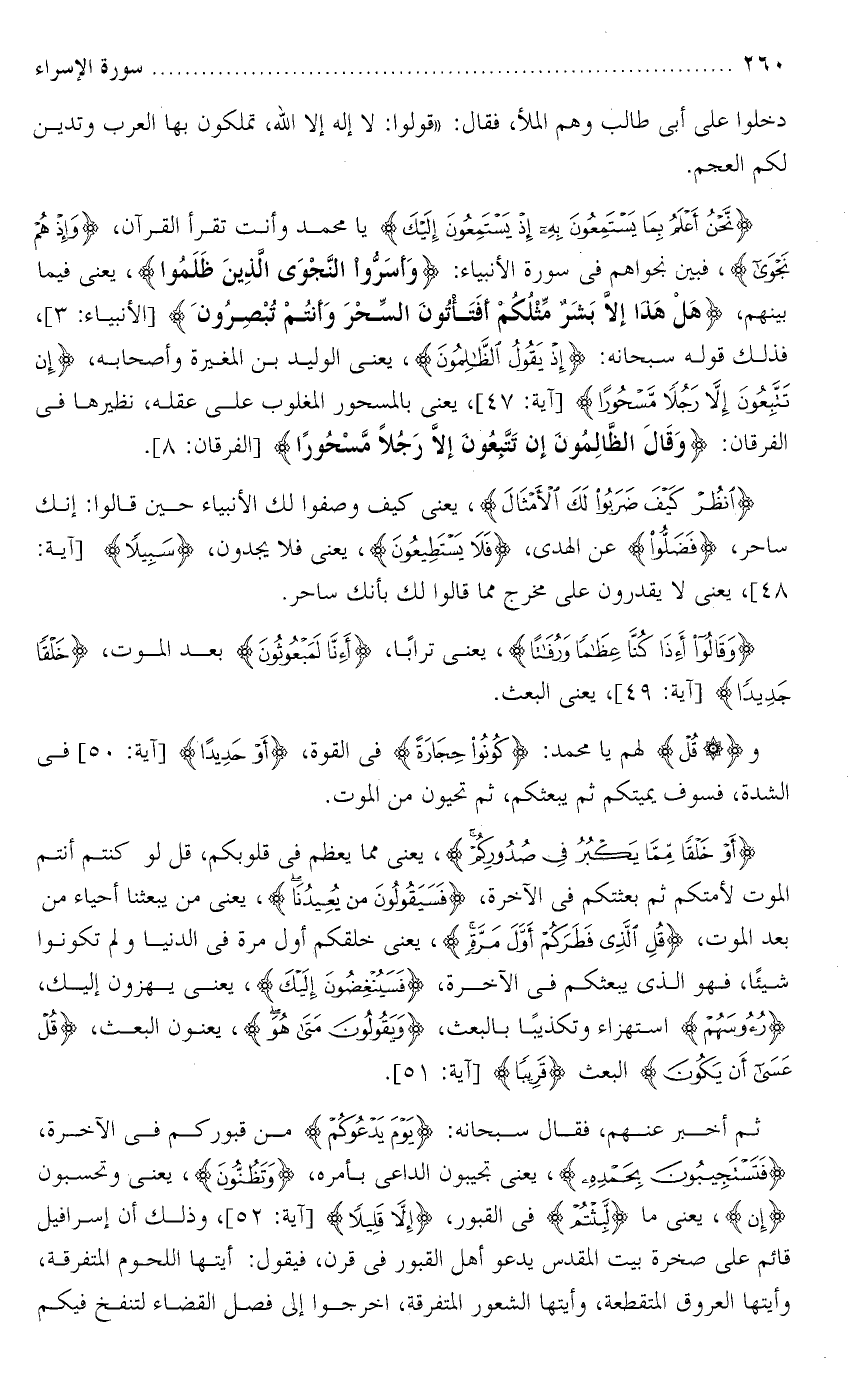 ٢٦٠ ........................................................................ سورة الإسراء
دخلوا على أبى طالب وهم الملأ، فقال: «قولوا: لا إله إلا الله، تملكون بها العرب وتديـن
لكم العجم.
﴿نَّحْنُ أَعْلَمُ بِمَا يَسْتَمِعُونَ بِهِۦٓ إِذْ يَسْتَمِعُونَ إِلَيْكَ﴾ يا محمد وأنت تقرأ القرآن، ﴿وَإِذْ هُمْ
نَجْوَىٰٓ﴾، فبين نجواهم فى سورة الأنبياء: ﴿وَأَسَرُّوا النَّجْوَى الَّذِينَ ظَلَمُوا﴾، يعنى فيما
بينهم، ﴿هَلْ هَذَا إِلاَّ بَشَرٌ مِّثْلُكُمْ أَفَتَأْتُونَ السِّحْرَ وَأَنتُمْ تُبْصِرُونَ﴾ [الأنبياء: ٣]،
فذلك قوله سبحانه: ﴿إِذْ يَقُولُ ٱلظَّٰلِمُونَ﴾، يعنى الوليد بن المغيرة وأصحابه، ﴿إِن
تَتَّبِعُونَ إِلَّا رَجُلًا مَّسْحُورًا﴾ [آية: ٤٧]، يعنى بالمسحور المغلوب على عقله، نظيرها فى
الفرقان: ﴿وَقَالَ الظَّالِمُونَ إِن تَتَّبِعُونَ إِلاَّ رَجُلاً مَّسْحُورًا﴾ [الفرقان: ٨].
﴿ٱنظُرْ كَيْفَ ضَرَبُوا۟ لَكَ ٱلْأَمْثَالَ﴾، يعنى كيف وصفوا لك الأنبياء حين قالوا: إنك
ساحر، ﴿فَضَلُّوا۟﴾ عن الهدى، ﴿فَلَا يَسْتَطِيعُونَ﴾، يعنى فلا يجدون، ﴿سَبِيلًا﴾ [آية:
٤٨]، يعنى لا يقدرون على مخرج مما قالوا لك بأنك ساحر.
﴿وَقَالُوٓا۟ أَءِذَا كُنَّا عِظَٰمًا وَرُفَٰتًا﴾، يعنى ترابًا، ﴿أَءِنَّا لَمَبْعُوثُونَ﴾ بعد الموت، ﴿خَلْقًا
جَدِيدًا﴾ [آية: ٤٩]، يعنى البعث.
و ﴿۞ قُلْ﴾ لهم يا محمد: ﴿كُونُوا۟ حِجَارَةً﴾ فى القوة، ﴿أَوْ حَدِيدًا﴾ [آية: ٥٠] فى
الشدة، فسوف يميتكم ثم يبعثكم، ثم تحيون من الموت.
﴿أَوْ خَلْقًا مِّمَّا يَكْبُرُ فِى صُدُورِكُمْ ۚ﴾، يعنى مما يعظم فى قلوبكم، قل لو كنتم أنتم
الموت لأمتكم ثم بعثتكم فى الآخرة، ﴿فَسَيَقُولُونَ مَن يُعِيدُنَا ۖ﴾، يعنى من يبعثنا أحياء من
بعد الموت، ﴿قُلِ ٱلَّذِى فَطَرَكُمْ أَوَّلَ مَرَّةٍ ۚ﴾، يعنى خلقكم أول مرة فى الدنيا ولم تكونوا
شيئًا، فهو الذى يبعثكم فى الآخرة، ﴿فَسَيُنْغِضُونَ إِلَيْكَ﴾، يعنى يهزون إليك،
﴿رُءُوسَهُمْ﴾ استهزاء وتكذيبًا بالبعث، ﴿وَيَقُولُونَ مَتَىٰ هُوَ ۖ﴾، يعنون البعث، ﴿قُلْ
عَسَىٰٓ أَن يَكُونَ﴾ البعث ﴿قَرِيبًا﴾ [آية: ٥١].
ثم أخبر عنهم، فقال سبحانه: ﴿يَوْمَ يَدْعُوكُمْ﴾ من قبوركم فى الآخرة،
﴿فَتَسْتَجِيبُونَ بِحَمْدِهِۦ﴾، يعنى تجيبون الداعى بأمره، ﴿وَتَظُنُّونَ﴾، يعنى وتحسبون
﴿إِن﴾، يعنى ما ﴿لَّبِثْتُمْ﴾ فى القبور، ﴿إِلَّا قَلِيلًا﴾ [آية: ٥٢]، وذلك أن إسرافيل
قائم على صخرة بيت المقدس يدعو أهل القبور فى قرن، فيقول: أيتها اللحوم المتفرقة،
وأيتها العروق المتقطعة، وأيتها الشعور المتفرقة، اخرجوا إلى فصل القضاء لتنفخ فيكم